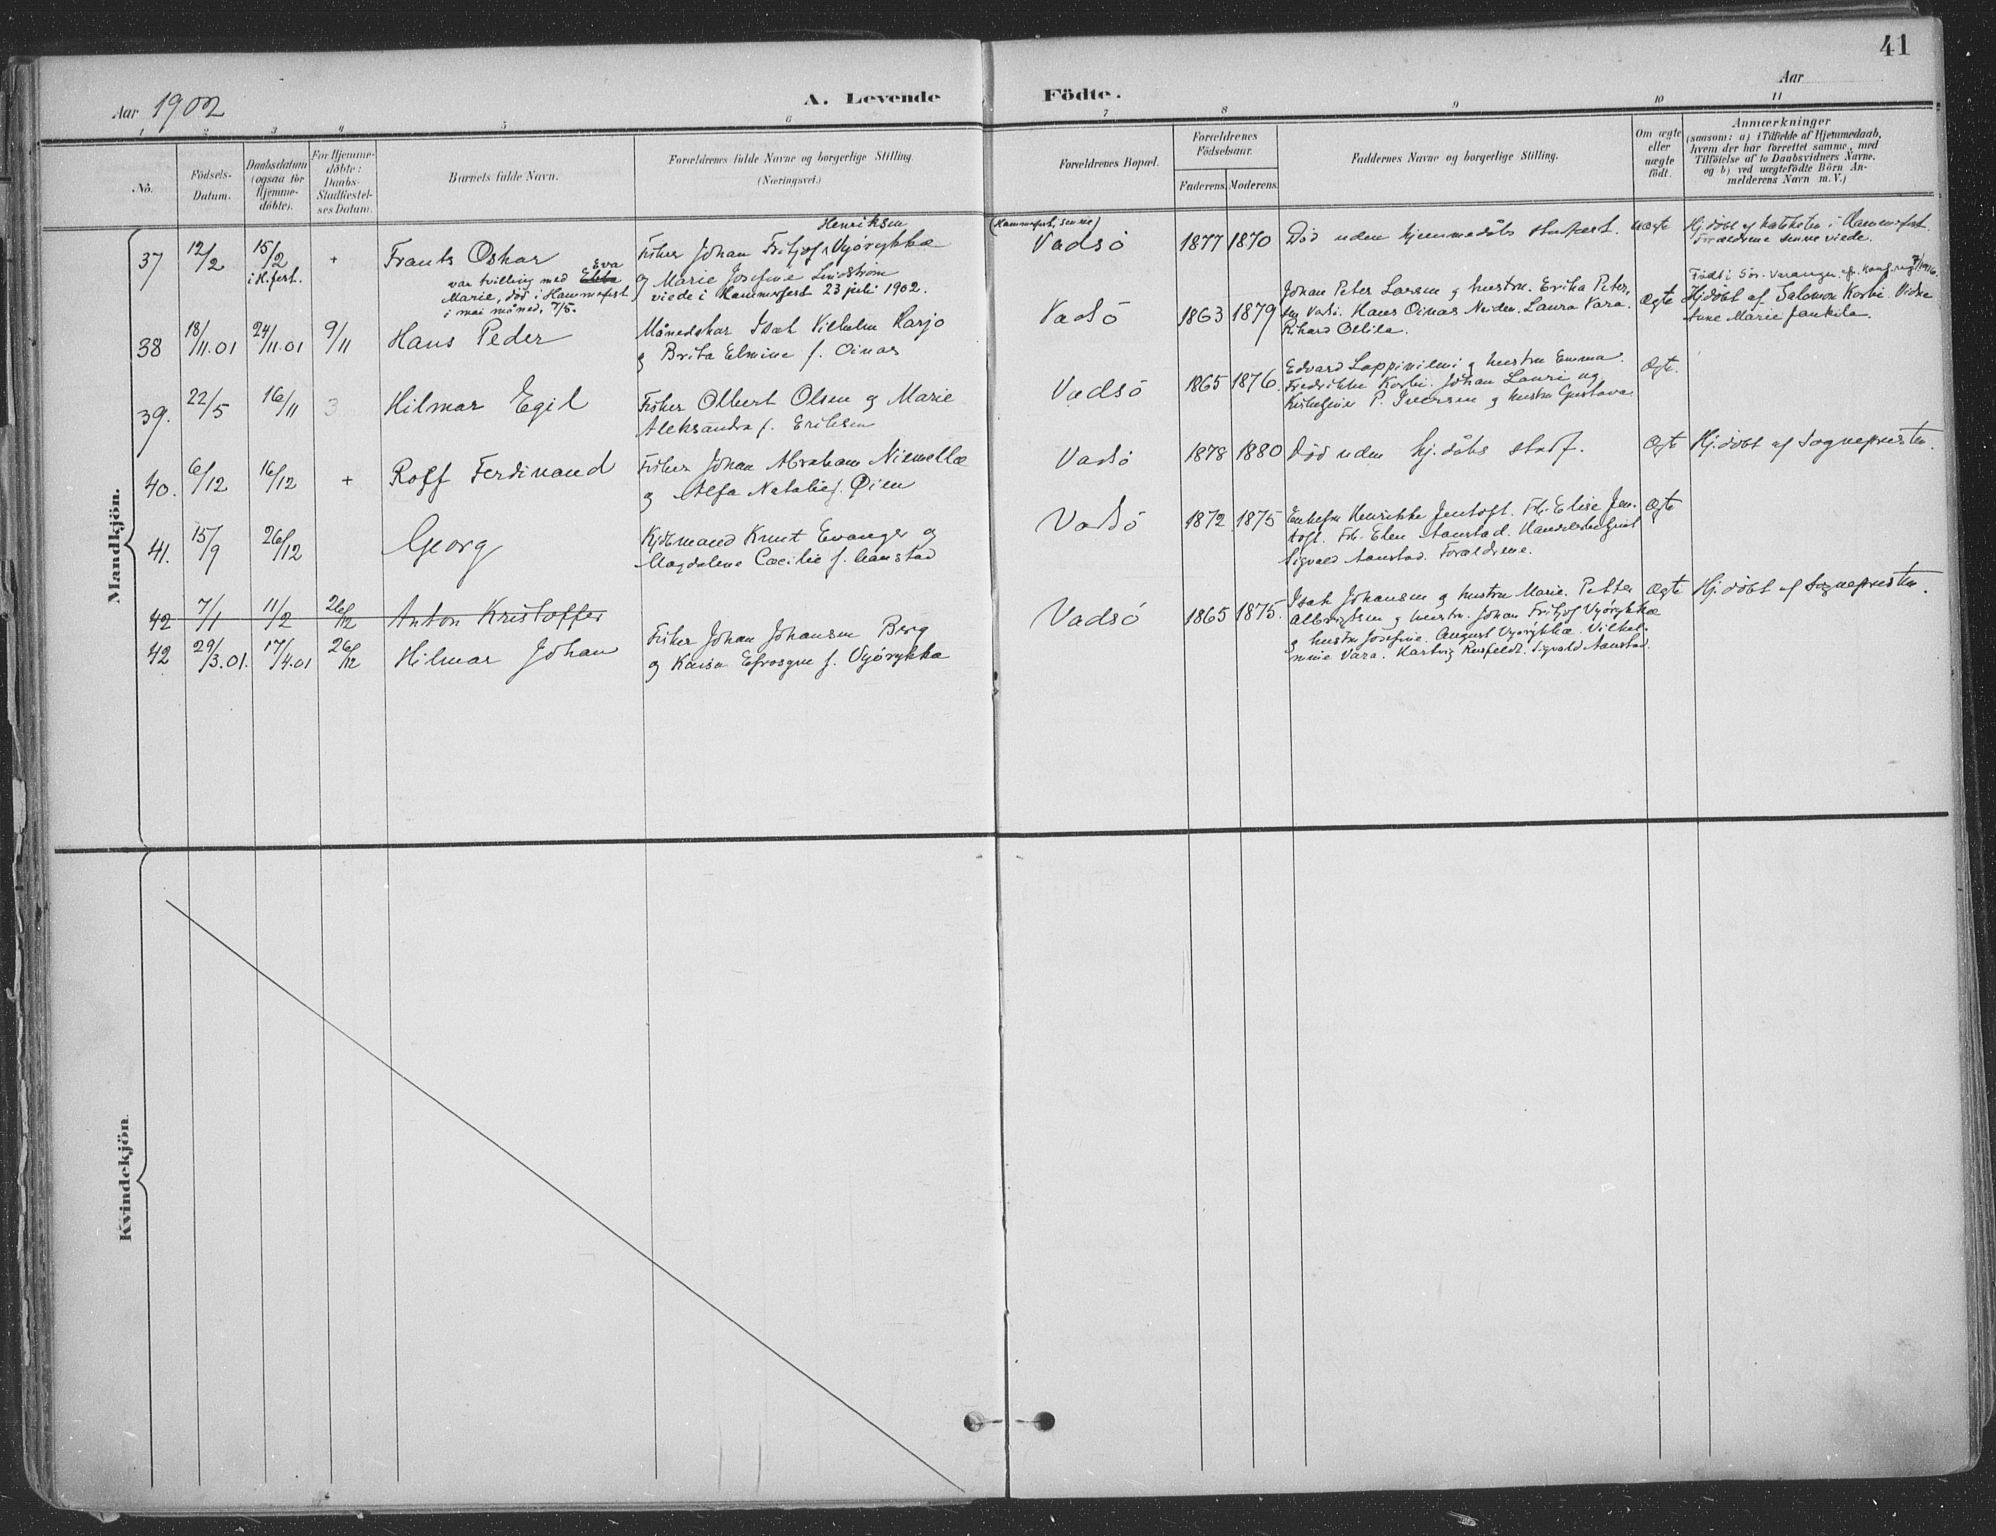 41
Aar 1902
A. Levende Födte.
Aar
1 2 3 4 5 6 7 8 9 10 11
No.
Födsels-
Datum.
Daabsdatum
(ogsaa for
Hjemme-
döbte).
For Hjemme-
döbte:
Daabs-
Stadfæstel-
ses Datum.
Barnets fulde Navn.
Forældrenes fulde Navne og borgerlige Stilling.
(Næringsvei.)
Forældrenes Bopæl.
Forældrenes
Födselsaar.
Faderens. Moderens.
Faddernes Navne og borgerlige Stilling.
Om ægte
eller
uægte
födt.
Anmærkninger
(saasom: a) i Tilfælde af Hjemmedaab,
hvem der har forrettet samme, med
Tilföielse af to Daabsvidners Navne,
og b) ved uægtefödte Börn An-
melderens Navn m. V.)
Mandkjön.
37 12/2 15/2 i H.fest. + Frants Oskar
var tvilling med Ebba Eva
Marie, död i Hammerfest
i mai måned, 7/5.
Henriksen
Fisker Johan Fritjof Vyörykkæ
og Marie Josefine Lindström
viede i Hammerfest 23 juli 1902.
(Hammerfest, senere)
Vadsö 1877 1870 Död uden hjemmedåbs stadfæst. uægte
Hj.döbt af kateketen i Hammerfest.
Forældrene senere viede.
38 18/11.01 24/11.01 9/11 Hans Peder
Månedskar Isak Vilhelm Karjo
og Brita Elmine f. Oinas
Vadsö 1863 1879
Johan Peter Larsen og hustru. Erika Peter,
sen Vadsö. Hans Oinas Neiden. Laura Vara.
Rikard Ollila.
Ægte
Født i Sör-Varanger
Hj.döbt af Salomon Korbi. Vidne
Anne Marie Jankila.
39. 22/5 16/11 Hilmar Egil
Fisker Olbert Olsen og Marie
Aleksandra f. Eriksen
Vadsö 1865 1876.
Edvard Lappivilmi og hustru Emma.
Fredrikke Korbi. Johan Lauri og
P. Iversen og hustru Gustava.
Ægte.
40. 6/12 16/12 + Rolf Ferdinand
Fisker Johan Abraham Niemellæ
og Alfa Natalie f. Øien
Vadsö 1878 1880 Död uden hj.dåbs stadf. Ægte Hj.döbt af Sogneprusten.
41. 15/9 26/12 Georg
Kjöbmand Knut Evanger og
Magdalene Cæcilie f. Aanstad
Vadsö 1872 1875
Enkefru Henrikke Jentoft. Frk. Elise Jen-
toft. Frk. Elen Aanstad. Handelsbetjent
Sigvald Aanstad. Forældrene.
Ægte
42 7/1 11/2 26/12 Anton Kristoffer
42 29/3.01. 17/4.01 26/12 Hilmar Johan
Fisker Johan Johansen Berg
og Kaisa Efrosyne f. Vyörykkæ
Vadsö 1865 1875.
Isak Johansen og hustru Marie. Petter
Albrigtsen og hustru. Johan Fritjof Vyörykkæ
og hustru Josefine. August Vyörykkæ. Vilhel-
mine Vara. Hartvig Rusfeldt. Sigvald Aanstad.
Ægte Hj.döbt af Sogneprusten.
Kvindekjön.